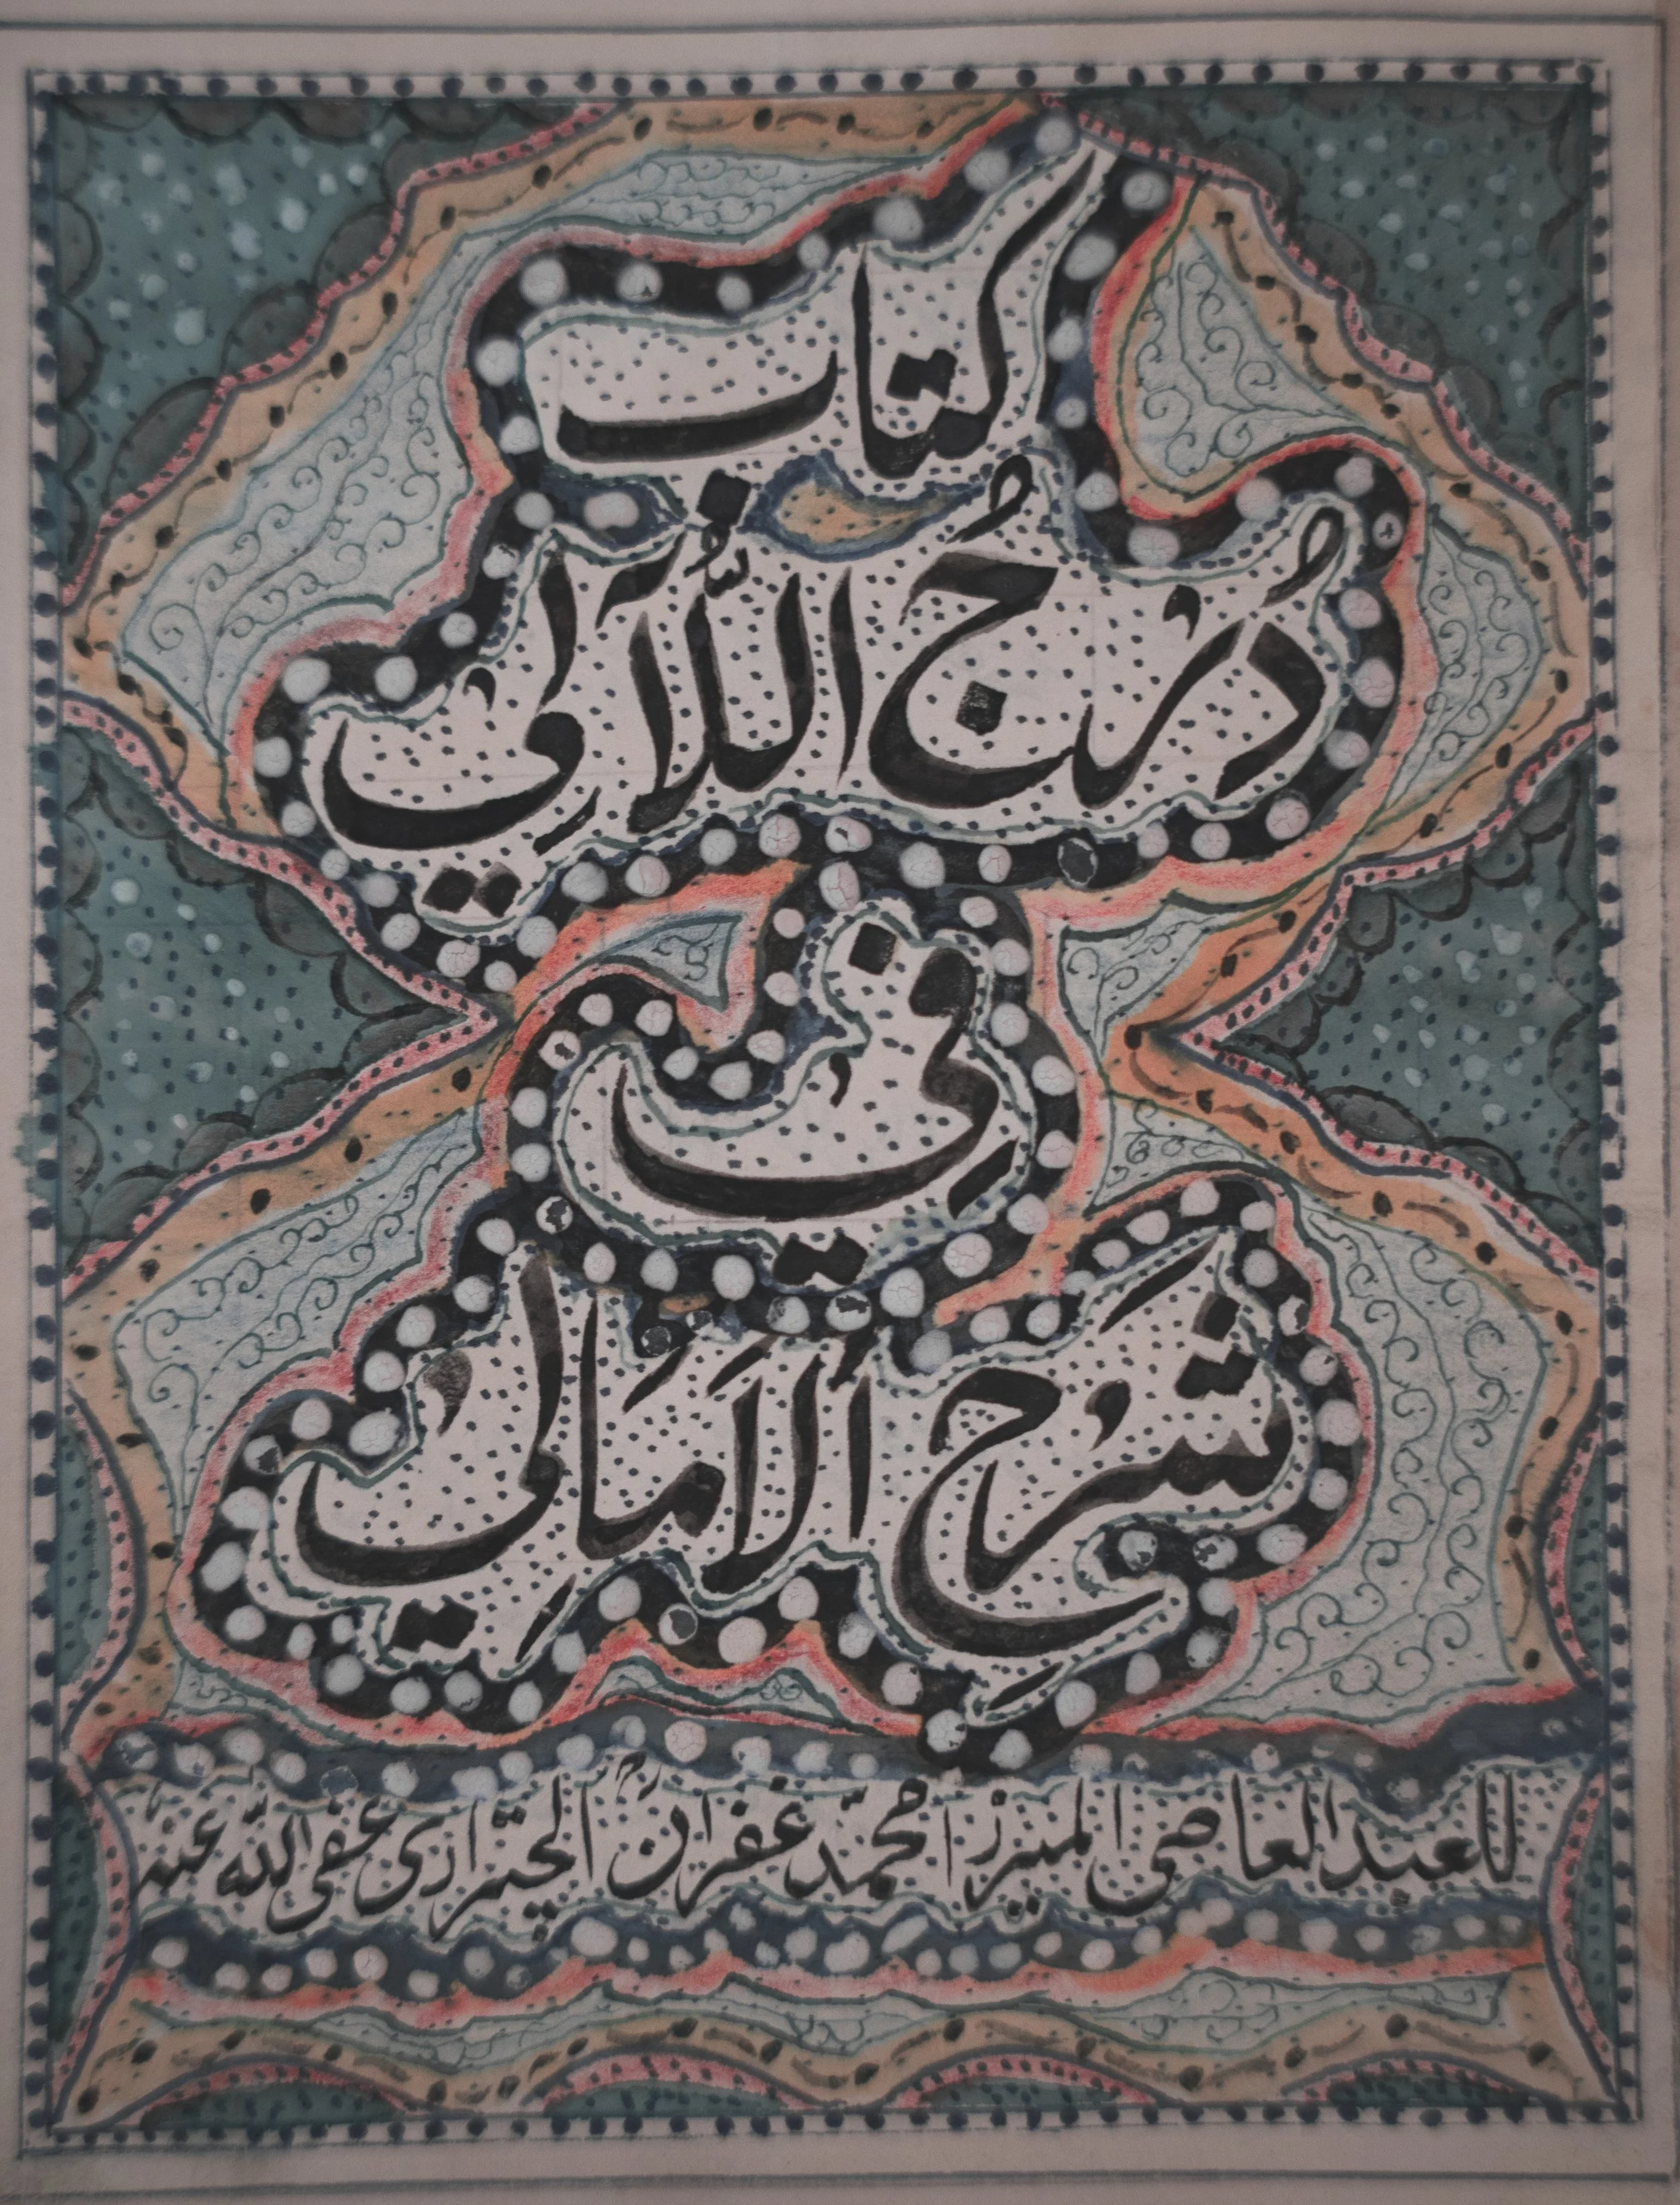 كتاب
دُرْجُ اللَّآلِي
فِي
شَرْحِ الْأَمَالِي
للعبد العاصي الميرزا محمّد غفران الجتراري عفى اللّه عنه